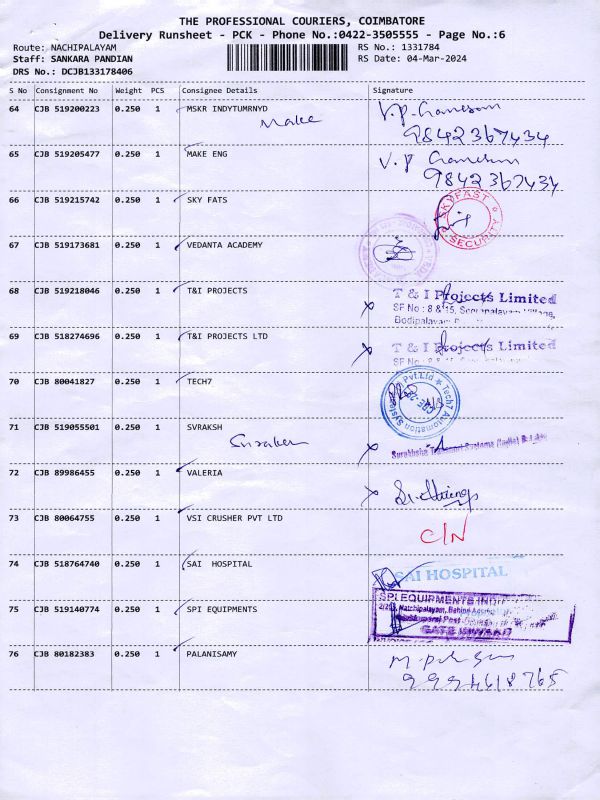 THE PROFESSIONAL COURIERS, COIMBATORE
Delivery Runsheet - PCK - Phone No.:0422-3505555 - Page No.:6
Route: NACHIPALAYAM RS No.: 1331784
Staff: SANKARA PANDIAN RS Date: 04-Mar-2024
DRS No.: DCJB133178406
S No Consignment No Weight PCS Consignee Details Signature
64 CJB 519200223 0.250 1 MSKR INDYTUMRNYD
Make
9842367434
65 CJB 519205477 0.250 1 MAKE ENG
9842367434
66 CJB 519215742 0.250 1 SKY FATS
SKYFAST
SECURITY
67 CJB 519173681 0.250 1 VEDANTA ACADEMY
68 CJB 519218046 0.250 1 T&I PROJECTS T & I Projects Limited
SF No : 8 & 15,
69 CJB 518274696 0.250 1 T&I PROJECTS LTD T & I Projects Limited
SF No : 8
70 CJB 80041827 0.250 1 TECH7
Tech7 Automation Systems Pvt.Ltd
71 CJB 519055501 0.250 1 SVRAKSH
72 CJB 89986455 0.250 1 VALERIA
73 CJB 80064755 0.250 1 VSI CRUSHER PVT LTD C/N
74 CJB 518764740 0.250 1 SAI HOSPITAL SAI HOSPITAL
75 CJB 519140774 0.250 1 SPI EQUIPMENTS SPI EQUIPMENTS
76 CJB 80182383 0.250 1 PALANISAMY
9994618765